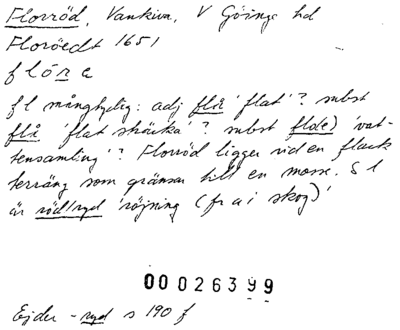 Florröd, Vankiva, V Göinge hd
Floröedt 1651
flörə
fl mångtydig: adj flå 'flat'? subst
flå 'flat sträcka'? subst flo(e) 'vat-
tensamling'? Florröd ligger vid en flack
terräng som gränsar till en mosse. S l
är röd/ryd 'röjning (fr a i skog)'
00026399
Ejder - ryd s 190 f